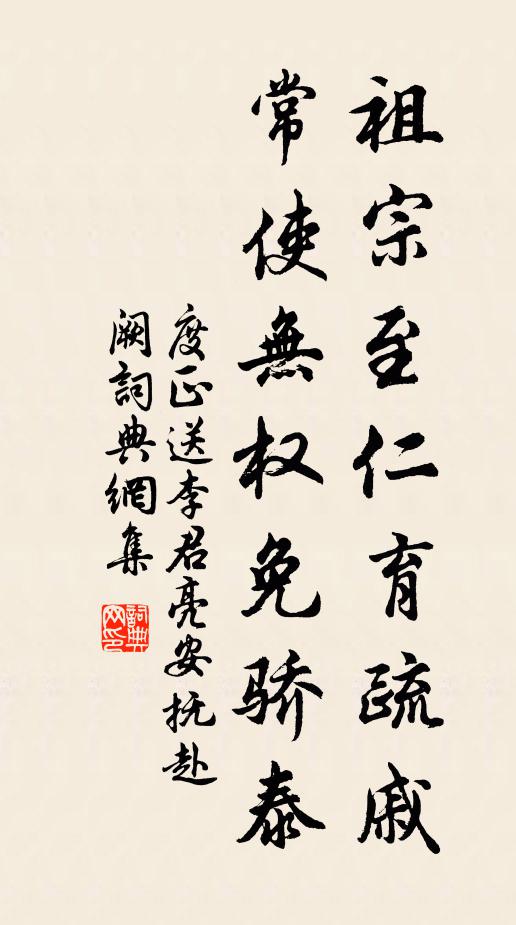 祖宗至仁育疏戚
常使無权免骄泰
度正送李君亮安抚赴
阙詞典網集
詞典
网印